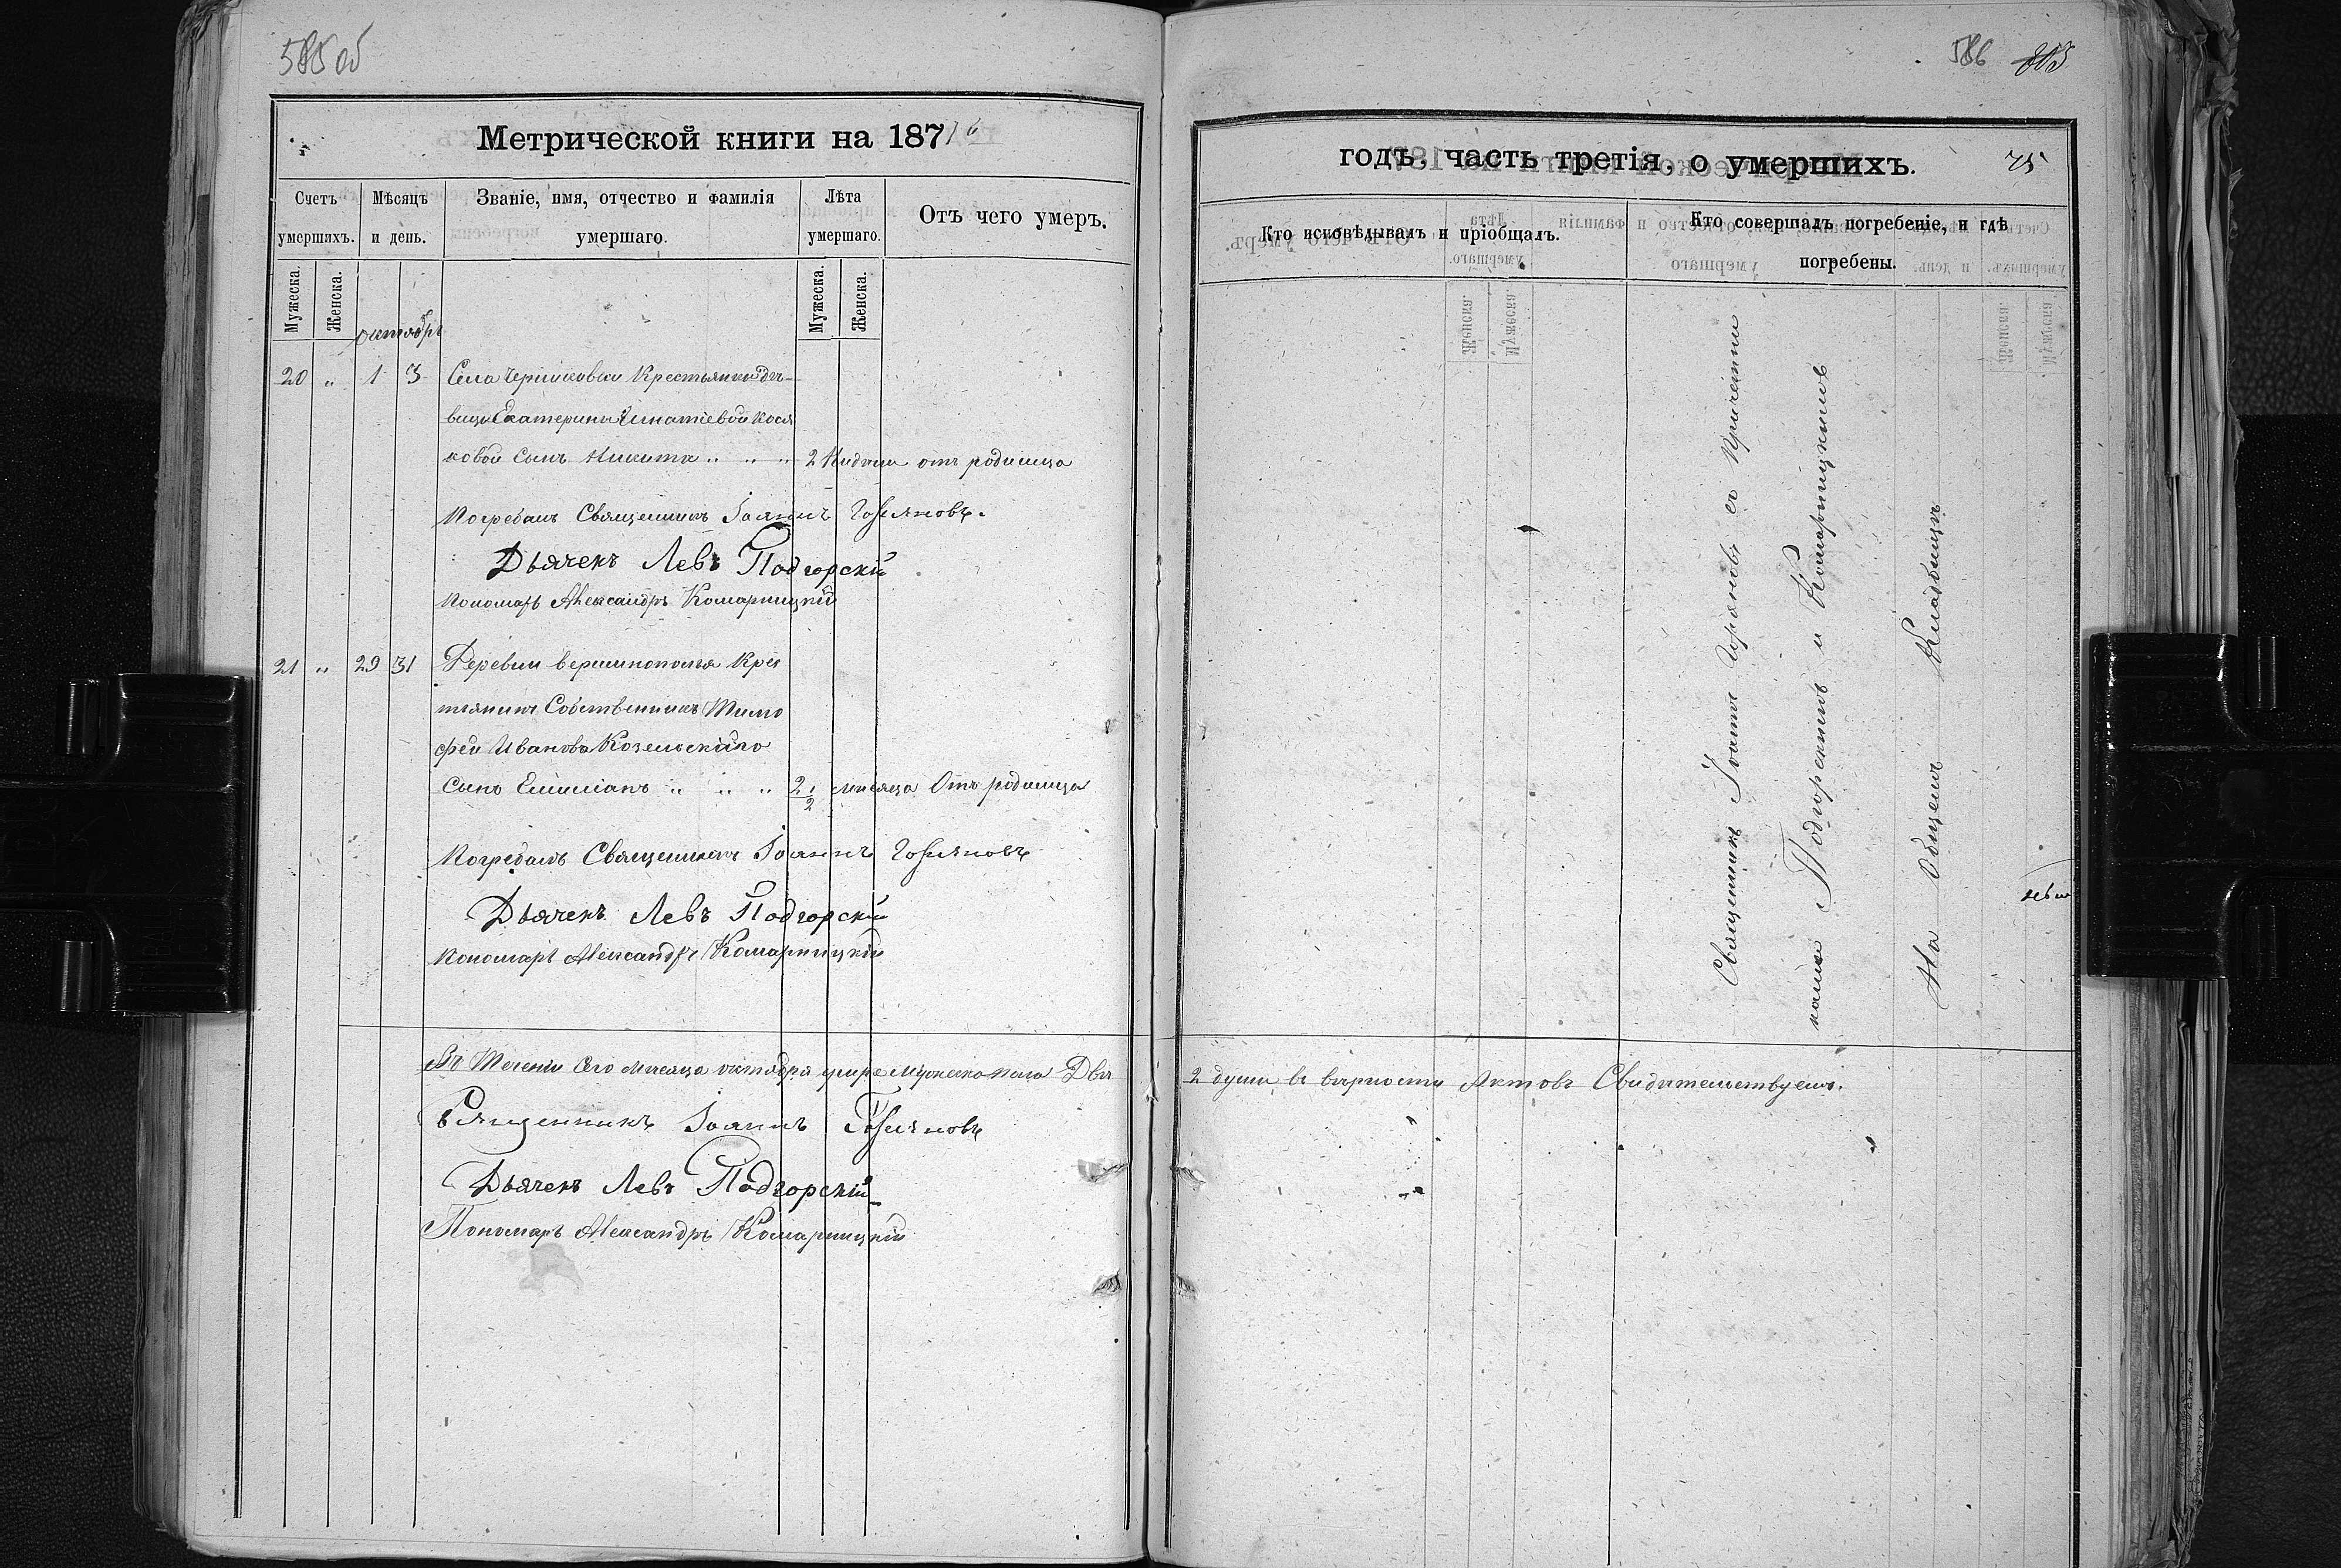 585 об
Метрической книги на 1876
Счетъ умершихъ.
Мѣсяцъ и день.
Званіе, имя, отчество и фамилія умершаго.
Лѣта умершаго.
Отъ чего умеръ.
Мужеска.
Женска.
Мужеска.
Женска.
октябрь
20 " 1 3 Села Крестьянки дѣ-
вицы Екатерины Игнатіевой Кося
ковой сынъ Никита " " " 2 Недѣли отъ родимца
Погребалъ Священникъ Іоаннъ
Дьячекъ Левъ Подгорскій
Пономарь Александръ Комарницкій
21 " 29 31 Деревни Вершинополья Крес
тьянина Собственника Тимо
фея Иванова Козельскаго
сынъ Емиліанъ " " " 2 1/2 мѣсяца Отъ родимца
Погребалъ Священникъ Іоаннъ
Дьячекъ Левъ Подгорскій
Пономарь Александръ Комарницкій
Въ Теченіи Сего мѣсяца октября умре мужеска пола Двѣ
Священникъ Іоаннъ
Дьячекъ Левъ Подгорскій
Пономарь Александръ Комарницкій
586
годъ, часть третія, о умершихъ.
75
Кто исповѣдывалъ и пріобщалъ.
Кто совершалъ погребеніе, и гдѣ погребены.
Священникъ Іоаннъ съ Причетни
ками Подгорскимъ и Комарницкимъ
На Общемъ Кладбищѣ
2 души въ вѣрности Актовъ Свидѣтельствуемъ.